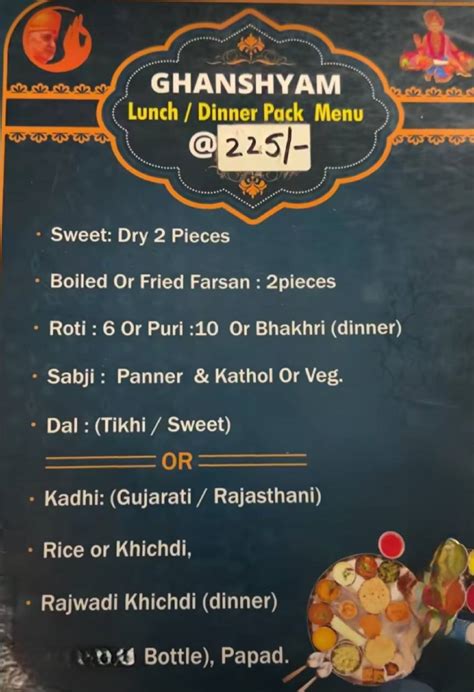 GHANSHYAM
Lunch / Dinner Pack Menu
@ 225/-
• Sweet: Dry 2 Pieces
• Boiled Or Fried Farsan : 2pieces
• Roti : 6 Or Puri :10 Or Bhakhri (dinner)
• Sabji : Panner & Kathol Or Veg.
• Dal : (Tikhi / Sweet)
OR
• Kadhi: (Gujarati / Rajasthani)
• Rice or Khichdi,
• Rajwadi Khichdi (dinner)
Bottle), Papad.